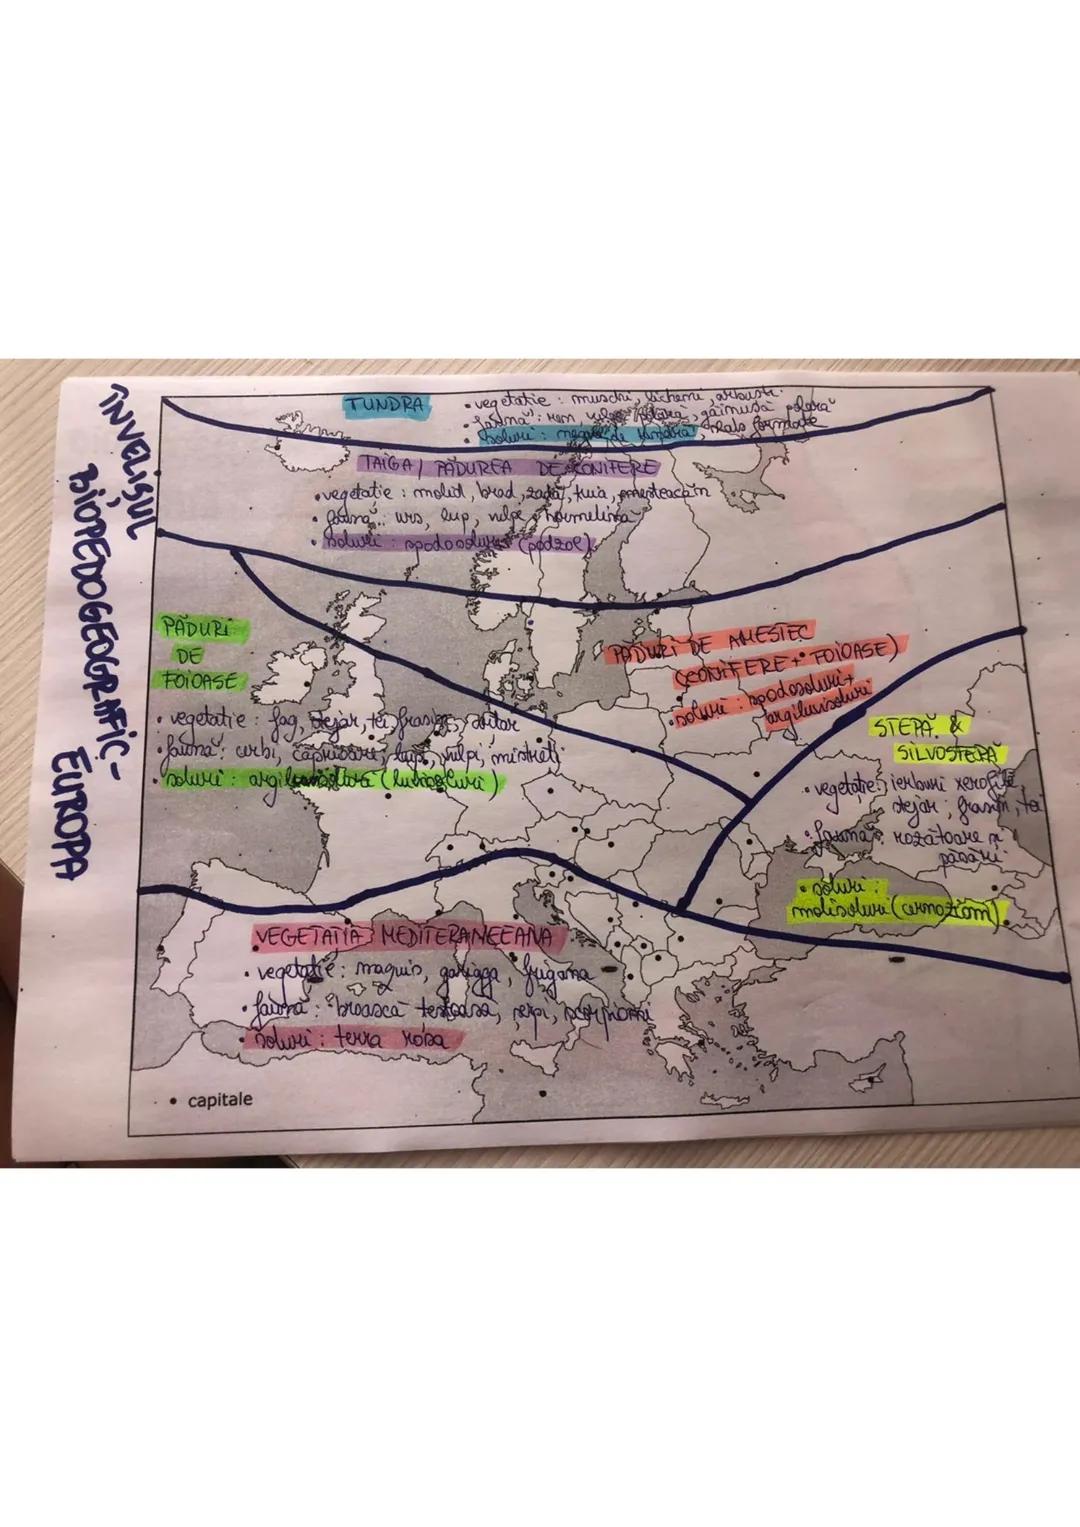 ÎNVELIȘUL
BIOPEDOGEOGRAFIC-
EUROPA
TUNDRA
• vegetatie : muschi, licheni, arbusti
• faună : ren, vulpe polară, găinușă polară
• soluri : negre de tundră, slab formate
TAIGA / PĂDUREA DE CONIFERE
• vegetație : molid, brad, zadă, tuia, mesteacăn
• faună : urs, lup, vulpe, hermelina
• soluri : spodosoluri (podzol)
PĂDURI
DE
FOIOASE
• vegetatie : fag, stejar, tei, frasin,
• faună : cerbi, căprioare, lupi, vulpi, mistreți
• soluri : argiluvisoluri (luvisoluri)
PĂDURI DE AMESTEC
(CONIFERE + FOIOASE)
• soluri : spodosoluri +
argiluvisoluri
STEPĂ &
SILVOSTEPĂ
• vegetație : ierburi xerofite,
stejar, frasin, tei
• faună : rozătoare și
păsări
• soluri :
molisoluri (cernoziom)
VEGETAȚIA MEDITERANEEANA
• vegetatie : maquis, garigga, frigana
• faună : broască testoasa, serpi, scorpioni
• soluri : terra rosa
• capitale